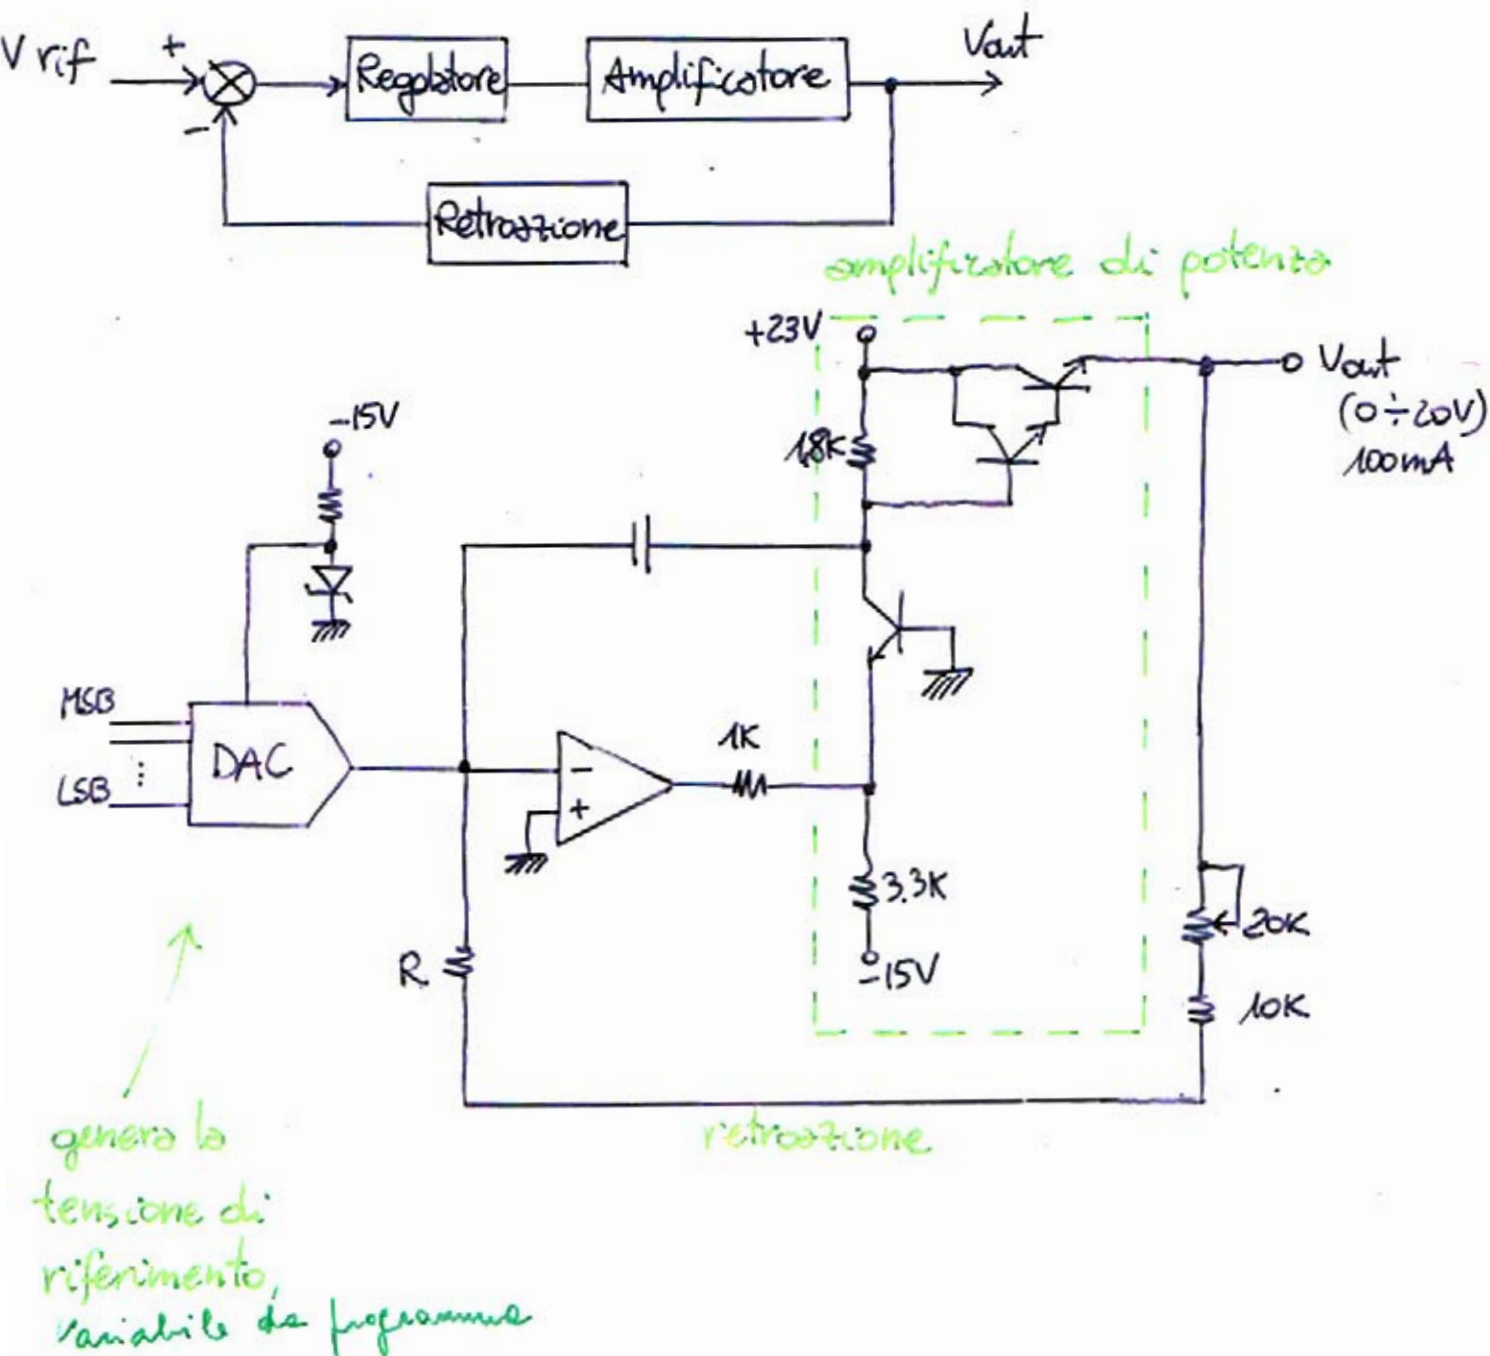 V rif
+
-
Regolatore
Amplificatore
Vout
Retroazione
amplificatore di potenza
+23V
Vout
(0÷20V)
100mA
-15V
1,8K
MSB
LSB
DAC
-
+
1K
3.3K
-15V
R
20K
10K
retroazione
genera la
tensione di
riferimento,
variabile da programma